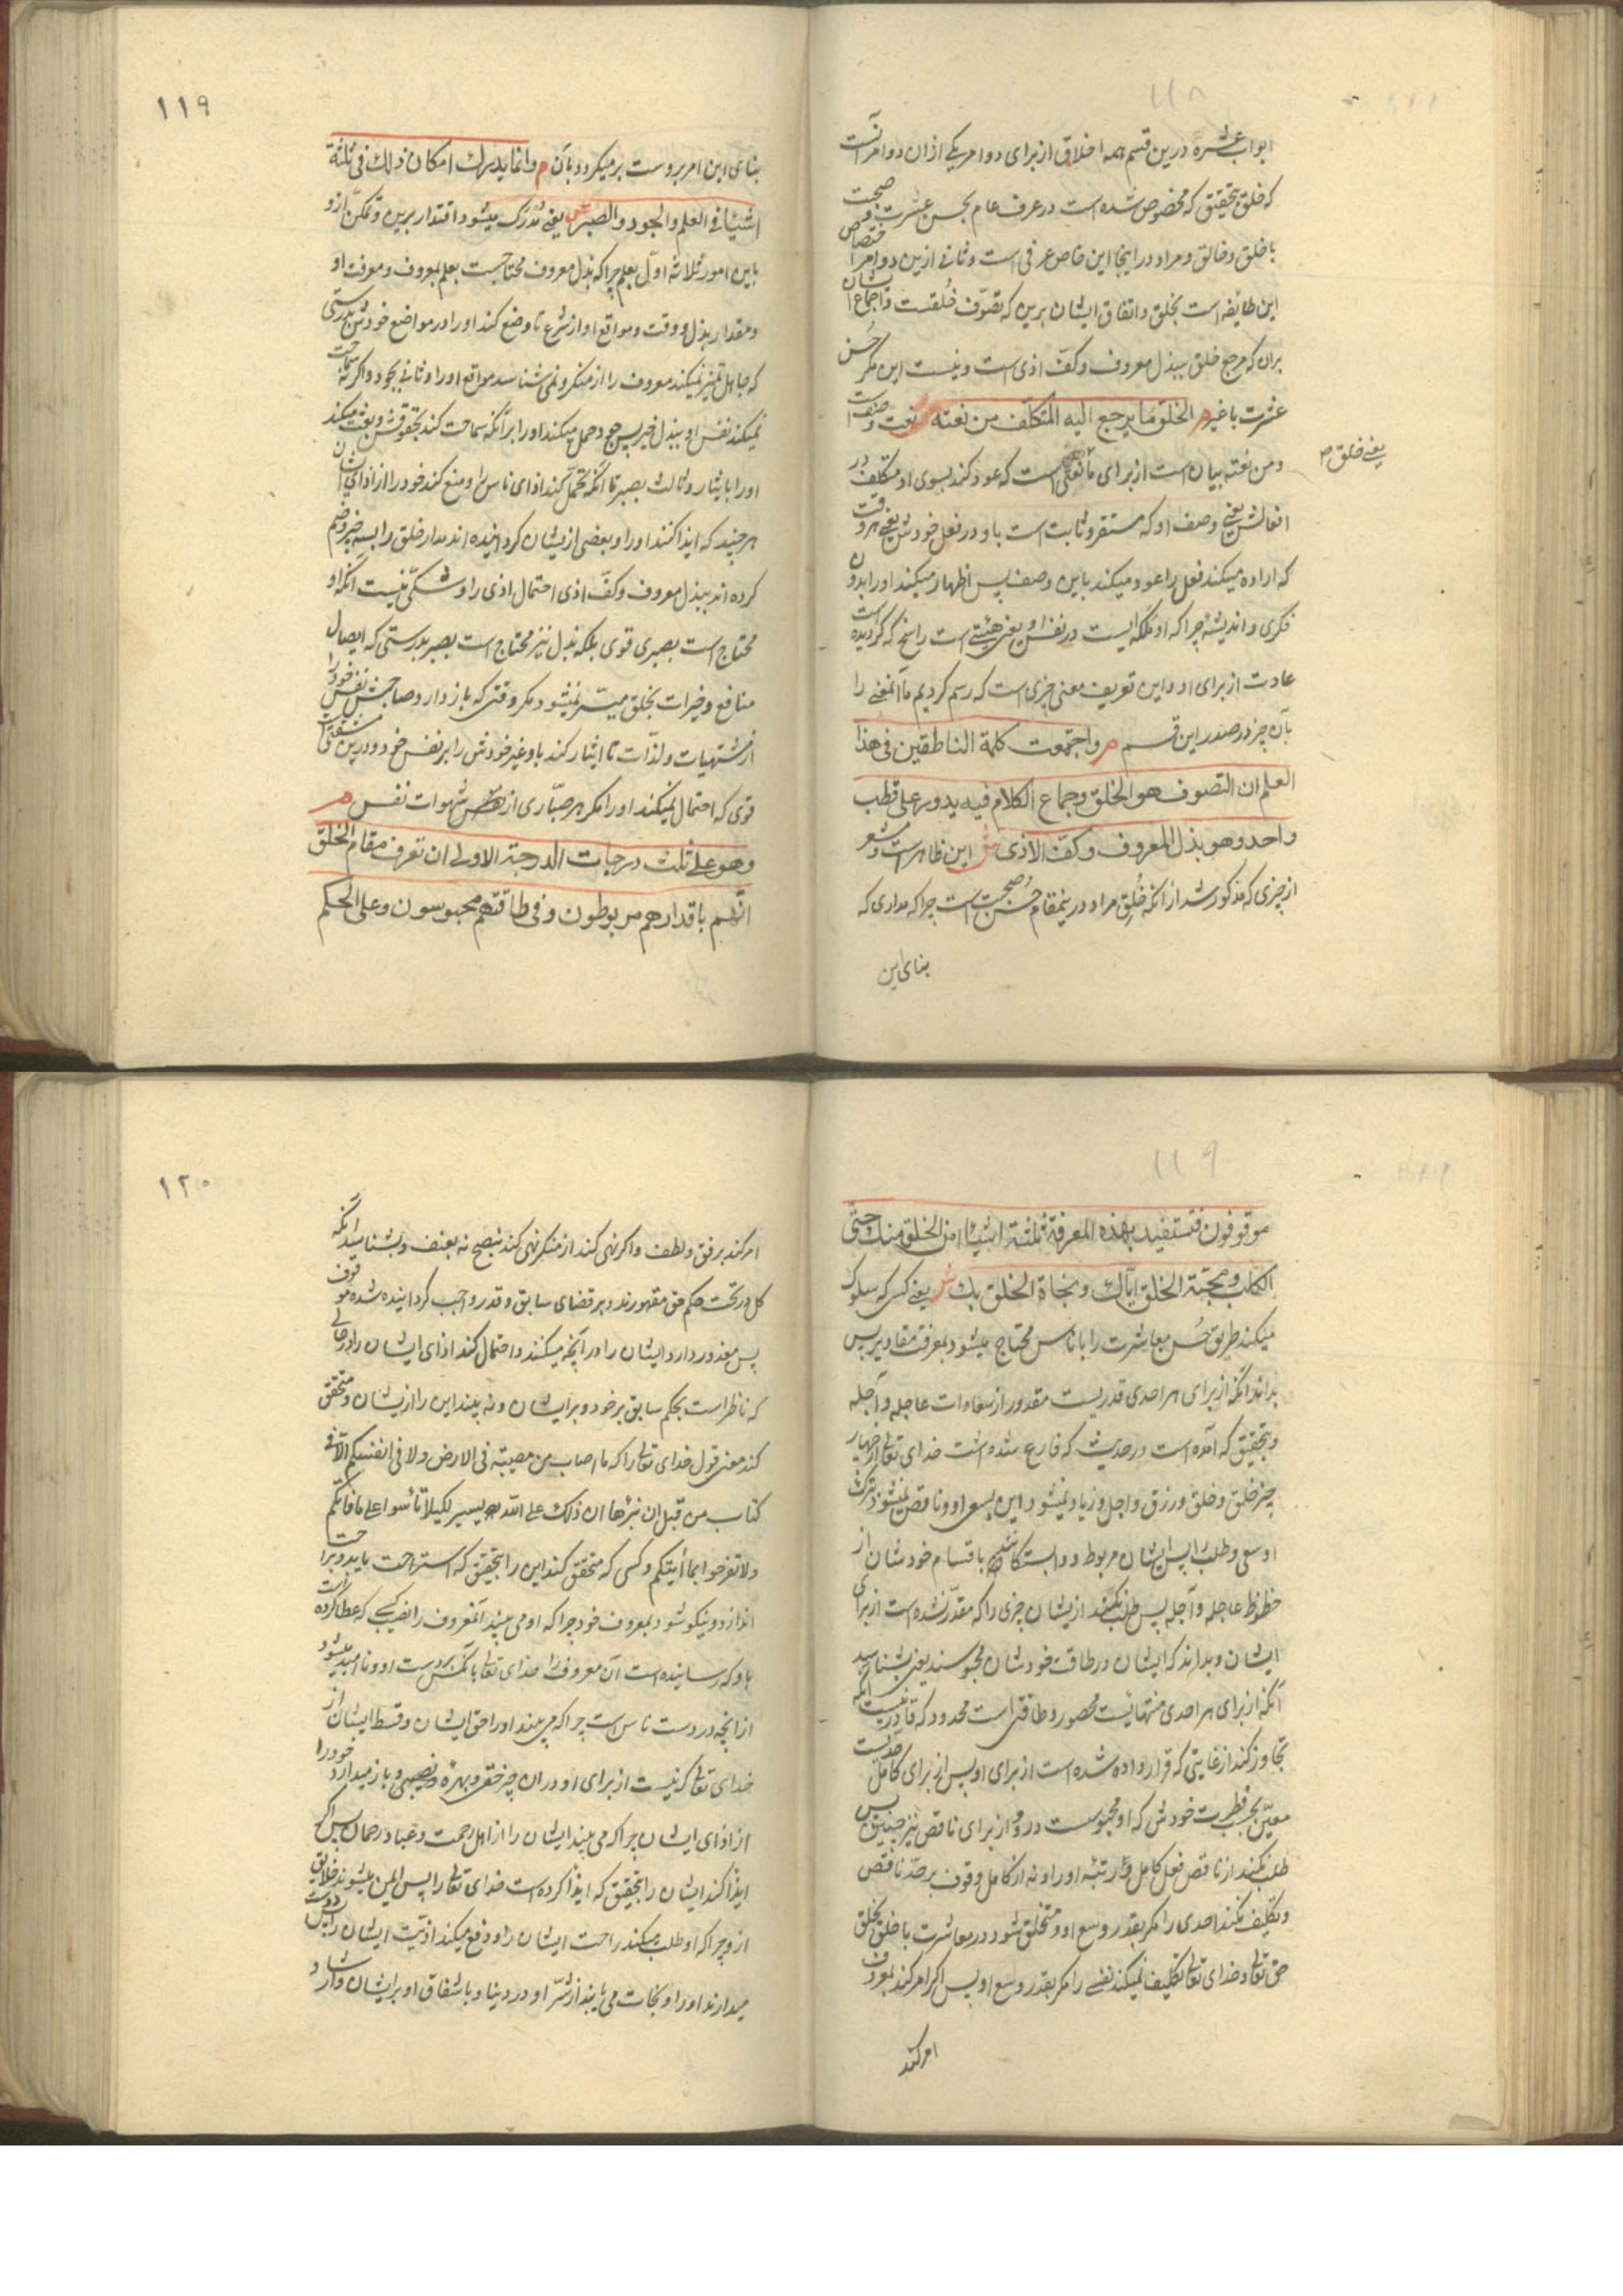 ۱۱۸
ابواب عشره درین قسم همه اخلاق از برای دو امر یکی ازان دو امر آنست
که خلق بتحقیق که مخصوص شده است در عرف عام بحسن عشرت و صحبت
با خلق و خالق و مراد در اینجا این خاص عرفی است و ثانی ازین دو امر اختصاص
این طائفه است بخلق و اتفاق ایشان برین که تصوّف خُلقست و اجماع ایشان
بران که مرجع خلق ببذل معروف و کفّ اذی است و نیست این مگر حُسن
عشرت با غیر م الخلق ما یرجع الیه المتکلّف من نعته ش نعت و صفت است
یعنی خلق
و من نعته بیان است از برای ما یعنی است که عود کند بسوی او متکلف در
افعالش یعنی وصف او که مستقر و ثابت است باو در فعل خودش یعنی هر وقت
که اراده میکند فعل را عود میکند باین وصف پس اظهار میکند او را بدون
فکری و اندیشه چرا که او ملکه ایست در نفس او یعنی هیئتی است راسخ که گردیده است
عادت از برای او و این تعریف معنی چیزی است که رسم کردیم ما آنمعنی را
بآن چیز در صدر این قسم م واجتمعت کلمة الناطقین فی هذا
العلم ان التصوف هو الخلق وجماع الکلام فیه یدور علی قطب
واحد وهو بذل المعروف وکفّ الاذی ش این ظاهر است و مشعر
از چیزی که مذکور شد از آنکه خُلق مراد درینمقام حُسن صحبت است چرا که مداری که
بنای این
۱۱۹
بنای این امر بروست برمیگردد بآن م وانما یدرک امکان ذلک فی ثلثة
اشیاء فی العلم والجود والصبر ش یعنی مُدرَک میشود اقتدار برین و تمکّن ازو
باین امور ثلاثه اوّل بعلم چرا که بذل معروف محتاجست بعلم بمعروف و معرفت او
و مقدار بذل و وقت و مواقع او از شرع تا وضع کند او را در مواضع خودش بدرستی
که جاهل تمیز نمیکند معروف را از منکر و نمی شناسد مواقع او را و ثانی بجود و اگر نه سماحت
نمیکند نفس او ببذل خیر پس جود حمل میکند او را برآنکه سماحت کند بحقوقش و بعث میکند
او را بایثار و ثالث بصبر تا آنکه تحمّل کند اذای ناس را و منع کند خود را از اذای ایشان
هر چند که ایذا کنند او را و بعضی ازیشان گردانیده اند مدار خلق را بسه چیز و ضم
کرده اند ببذل معروف و کفّ اذی احتمال اذی را و شکّی نیست آنکه او
محتاج است بصبری قوی بلکه بذل نیز محتاج است بصبر بدرستی که ایصال
منافع و خیرات بخلق میسّر نمیشود مگر وقتی که باز دارد صاحبش نفس خود را
از مشتهیات و لذّات تا ایثار کند باو غیر خودش را بر نفس خود و درین مشقتی است
قوی که احتمال نمیکند او را مگر هر صبّاری از شهوات نفس م
وهو علی ثلث درجات الدرجة الاولی ان تعرف مقام الخلق
انهم باقدارهم مربوطون وفی طاقتهم محبوسون وعلی الحکم
۱۱۹
موقوفون فتستفید بهذه المعرفة ثلثة اشیاء امن الخلق منک حتی
الکلب ومحبّة الخلق ایّاک ونجاة الخلق بک ش یعنی کسی که سلوک
میکند طریق حُسن معاشرت را با ناس محتاج میشود بمعرفت مقادیر پس
بداند آنکه از برای هر احدی قدریست مقدور از سعادات عاجله و آجله
و بتحقیق که آمده است در حدیث که فارغ شده است خدای تعالی از چهار
چیز خلق و خلق و رزق و اجل و زیاد نمیشود این بسعی او و ناقص نمیشود بترک
او سعی و طلب را پس ایشان مربوط و وابستگانند باقسام خودشان از
حظوظ عاجله و آجله پس طلب نکند ازیشان چیزی را که مقدّر نشده است از برای
ایشان و بداند که ایشان در طاقت خودشان محبوسند یعنی بشناسد
آنکه از برای هر احدی منتهائیست محصور و طاقتی است محدود که قادر نیست آنکه
تجاوز کند از غایتی که قرار داده شده است از برای او پس از برای کامل حدیست
معیّن بحسب فطرت خودش که او محبوست درو و از برای ناقص نیز چنین پس
طلب نکند از ناقص فعل کامل و رتبه او را و نه از کامل وقوف بر حدّ ناقص
و تکلیف نکند احدی را مگر بقدر وسع او و متخلق شود در معاشرت با خلق بخلق
حق تعالی و خدای تعالی تکلیف نمیکند نفسی را مگر بقدر وسع او پس اگر امر کند بمعروف
امر کند
۱۲۰
امر کند برفق و لطف و اگر نهی کند از منکر نهی کند بنصح نه بعنف و بشناسد آنکه
کل در تحت حکم حق مقهورند و بر قضای سابق و قدر واجب گردانیده شده موقوف
پس معذور دارد ایشان را در آنچه میکنند و احتمال کند اذای ایشان را در حالی
که ناظر است بحکم سابق بر خود و بر ایشان و نه بیند این را ازیشان و متحقق
کند معنی قول خدای تعالی را که ما اصاب من مصیبة فی الارض ولا فی انفسکم الا فی
کتاب من قبل ان نبرأها ان ذلک علی الله یسیر لکیلا تأسوا علی ما فاتکم
ولا تفرحوا بما آتیکم و کسی که متحقق کند این را بتحقیق که استراحت یابد و براحت
اندازد و نیکو شود بمعروف خود چرا که او می بیند آنمعروف را نصیب کسی که عطا کرده است
باو که رسانیده است آن معروف را خدای تعالی بآنکس بر دست او و ناامید میشود
از آنچه در دست ناس است چرا که می بیند او را حق ایشان و قسط ایشان از
خدای تعالی که نیست از برای او دران چیز حقی و بهره و نصیبی و باز میدارد خود را
از اذای ایشان چرا که می بیند ایشان را از اهل رحمت و عباد رحمان پس اگر
ایذا کند ایشان را بتحقیق که ایذا کرده است خدای تعالی را پس ایمن میشوند خلایق
ازو چرا که او طلب میکند راحت ایشان را و دفع میکند اذیّت ایشان را پس دوست
میدارند او را و نجات می یابند از شرّ او در دنیا و باشفاق او بر ایشان و ارشاد